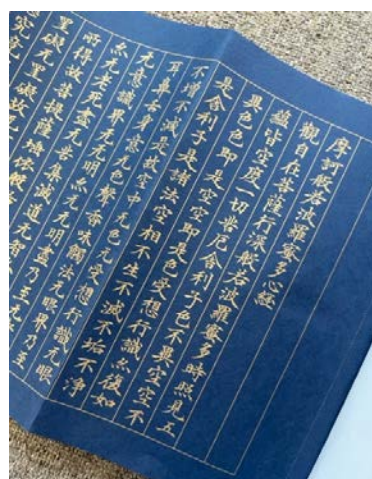 摩訶般若波羅蜜多心經
觀自在菩薩行深般若波羅蜜多時照見五
蘊皆空度一切苦厄舍利子色不異空空不
異色色即是空空即是色受想行識亦復如
是舍利子是諸法空相不生不滅不垢不淨
不增不減是故空中无色无受想行識无眼
耳鼻舌身意无色聲香味觸法无眼界乃至
无意識界无无明亦无无明盡乃至无老
亦无老死盡无苦集滅道无智
所得故菩提薩埵依般若
罣礙无罣礙故无
究竟